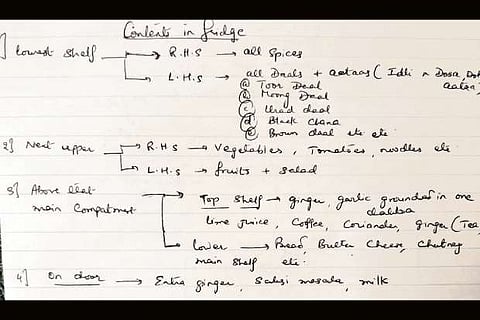 Contents in fridge
1] lowest shelf → R.H.S → all Spices
→ L.H.S → all Daals + aataas (Idli n Dosa
aataa)
(a) Toor Daal
(b) Moong Daal
(c) Urad daal
(d) Black Chana
(e) Brown daal etc etc
2] Next upper → R.H.S → Vegetables, Tomatoes, noodles etc
→ L.H.S → fruits + salad
3] Above that → Top shelf → ginger, garlic grounded in one
main Compartment dabba
lime juice, Coffee, Coriander, ginger (Tea
→ lower → Bread, Butter Cheese, Chutney
main shelf etc.
4] On door → Extra ginger, masala, milk